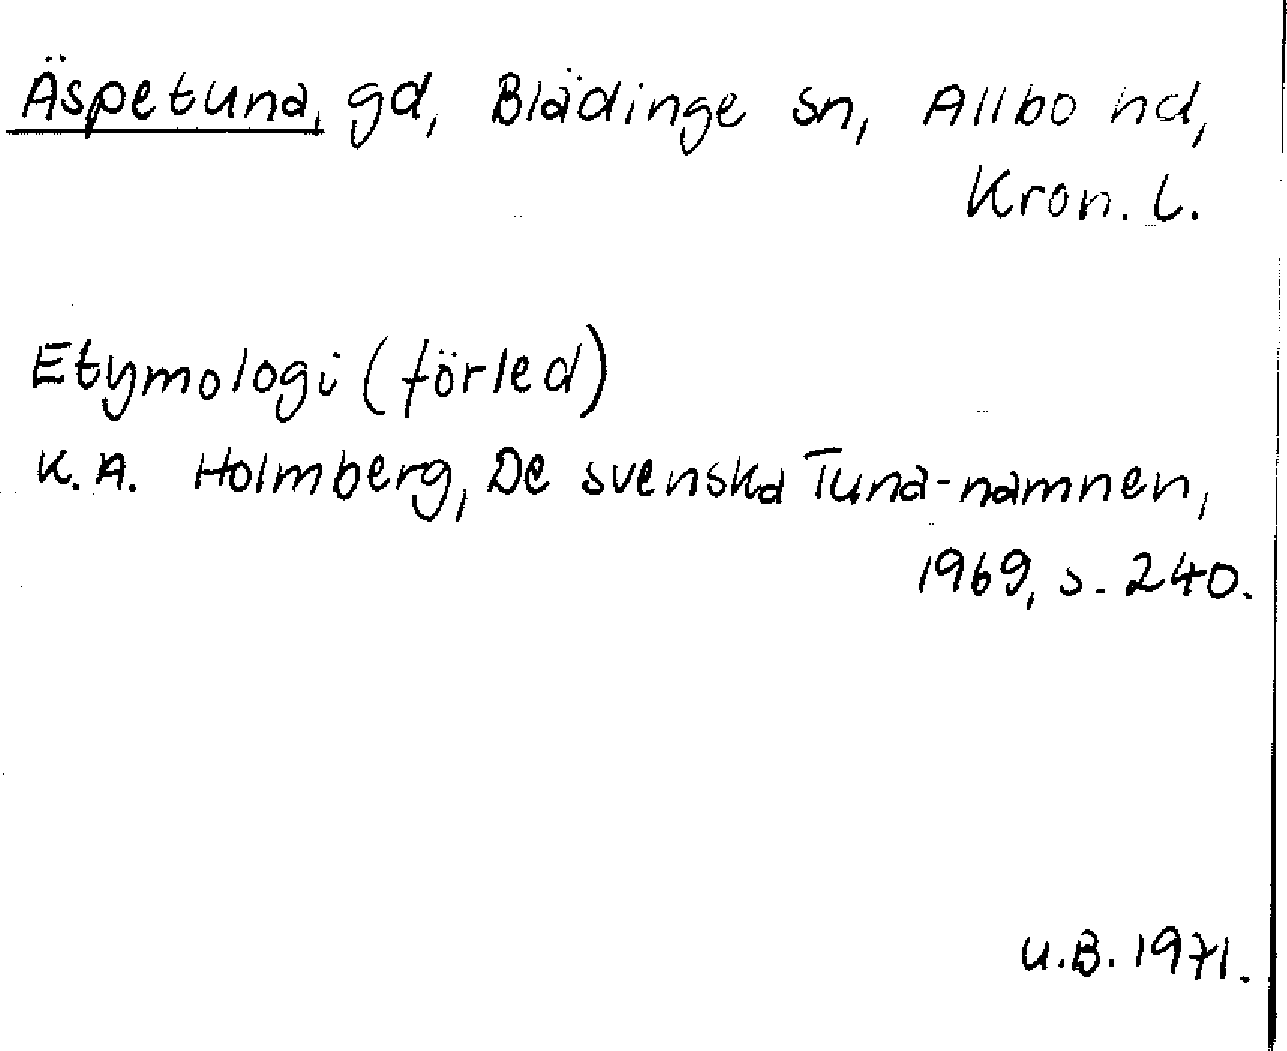 Äspetuna, gd, Blädinge sn, Allbo hd,
Kron. l.
Etymologi (förled)
K. A. Holmberg, De svenska Tuna-namnen,
1969, s. 240.
U.B. 1971.